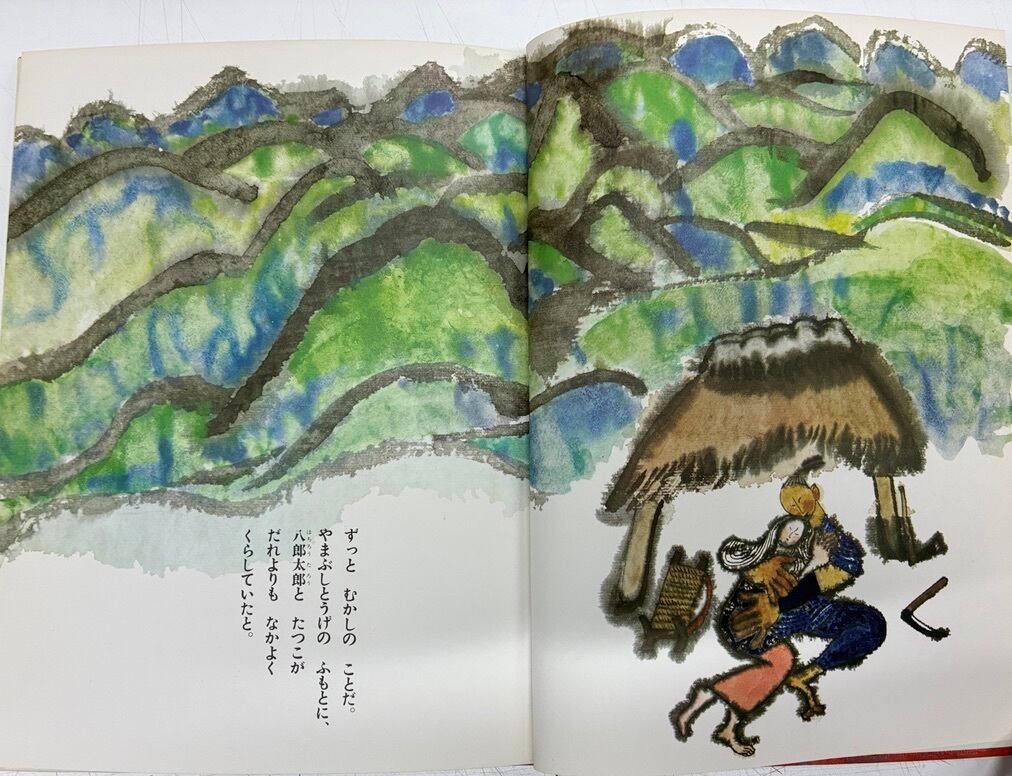 ずっと　むかしの　ことだ。
やまぶしとうげの　ふもとに、
八郎太郎と　たつこが
だれよりも　なかよく
くらしていたと。